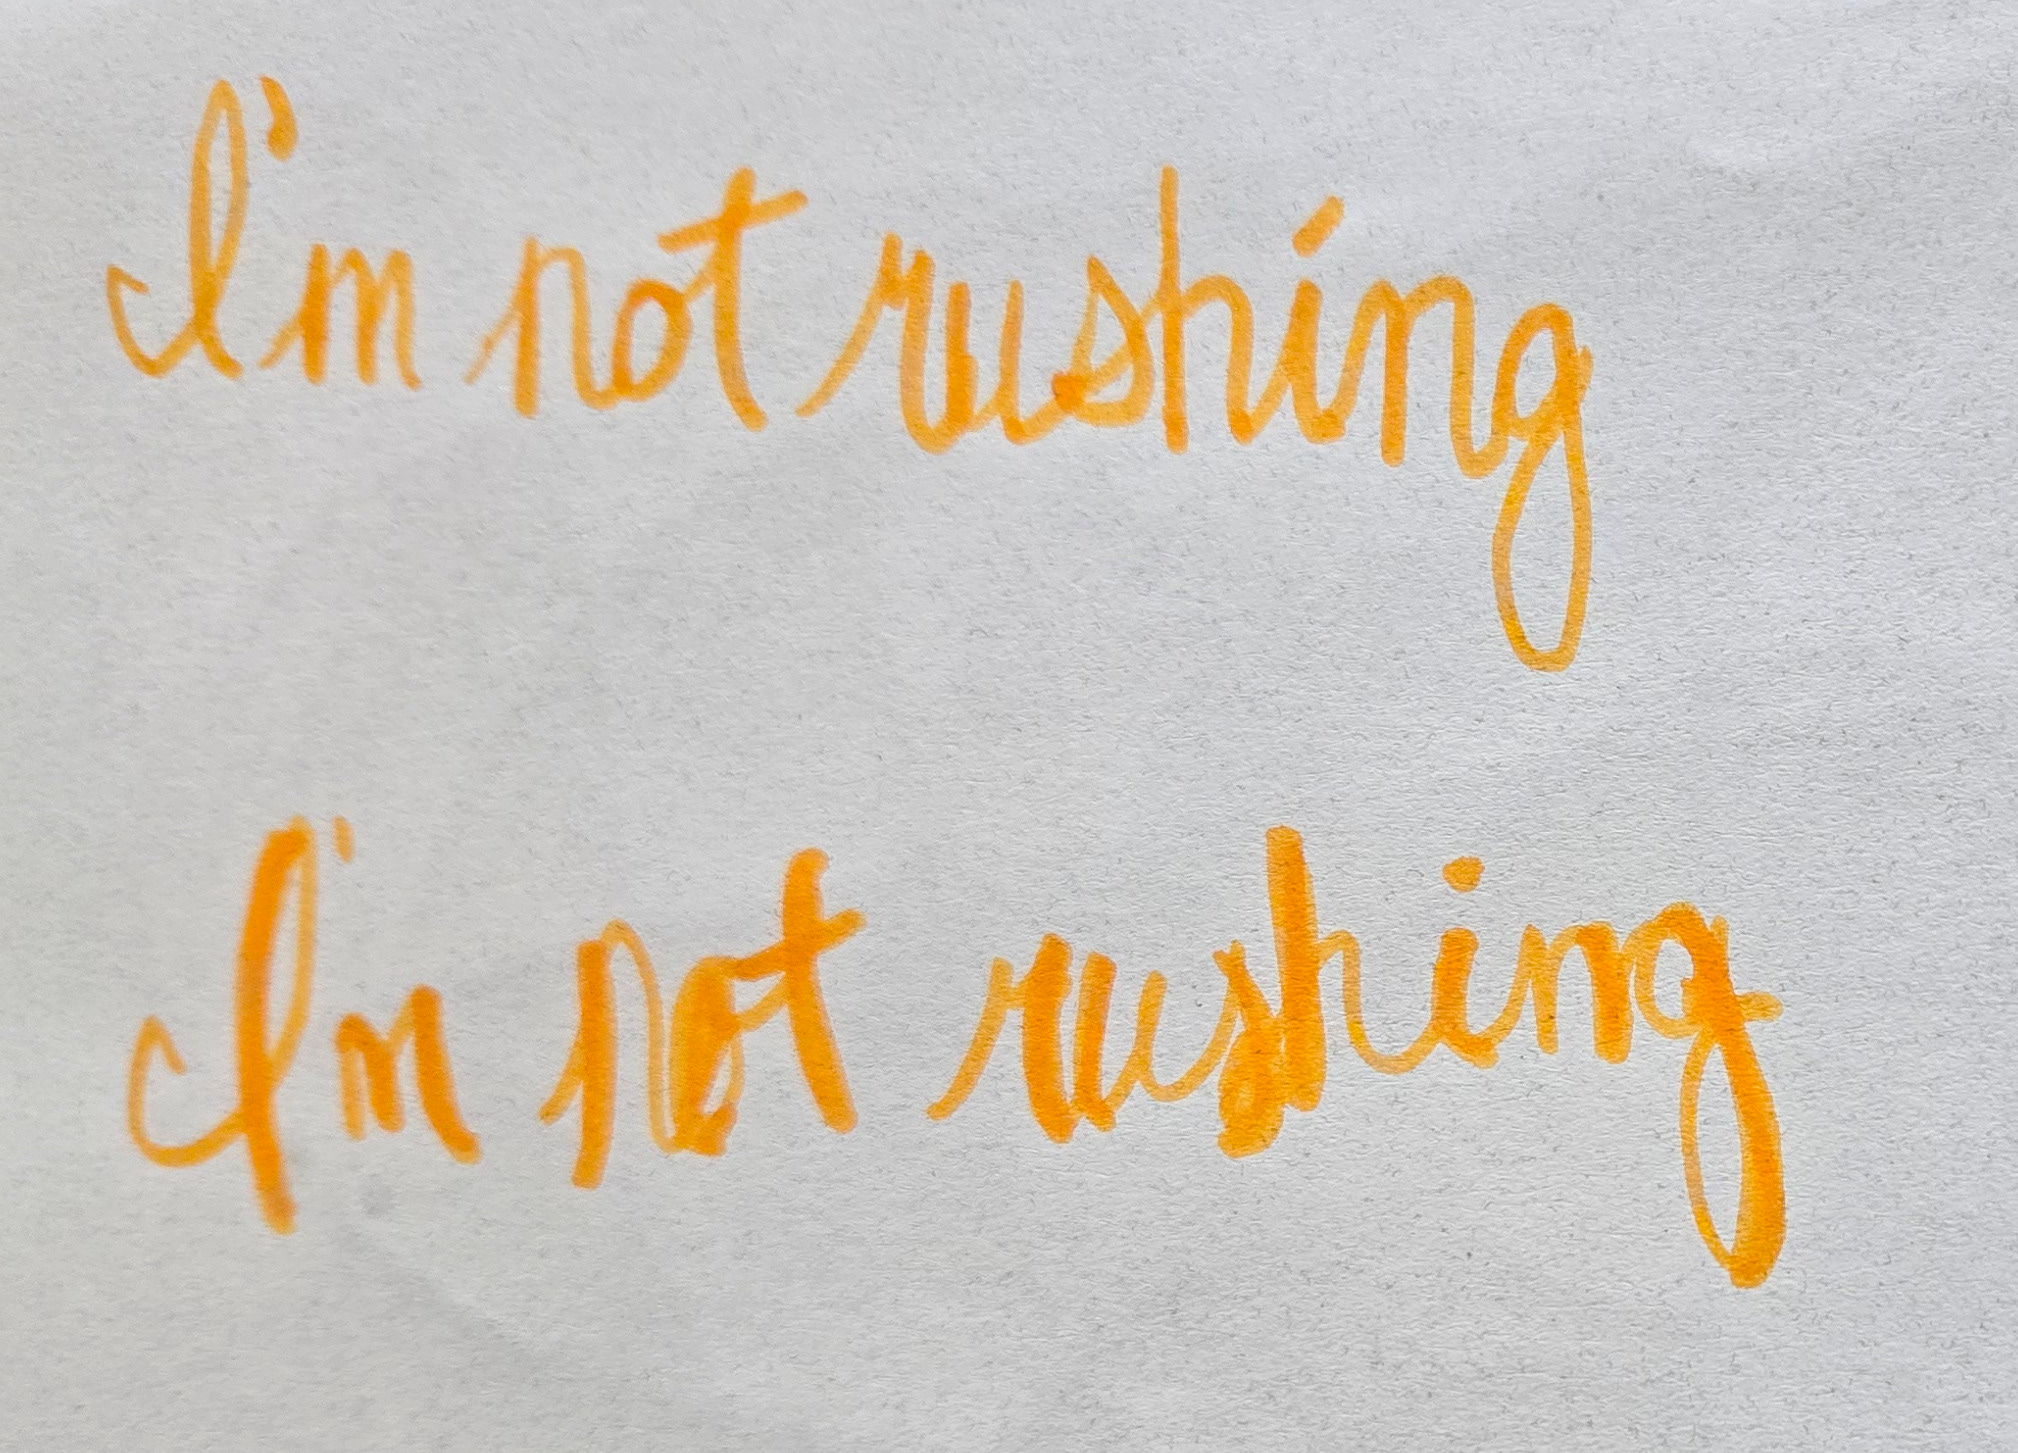 I'm not rushing
I'm not rushing